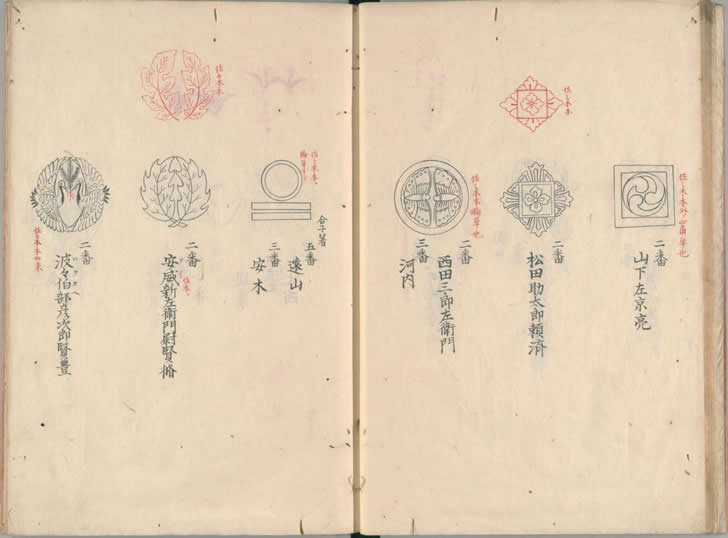 二番
山下左京亮
佐々木本
二番
松田助太郎頼済
二番
西田三郎左衛門
三番
河内
合子箸
五番
遠山
三番
安木
佐々木本
二番
安威新左衛門尉賢脩
二番
波々伯部彦次郎賢豊